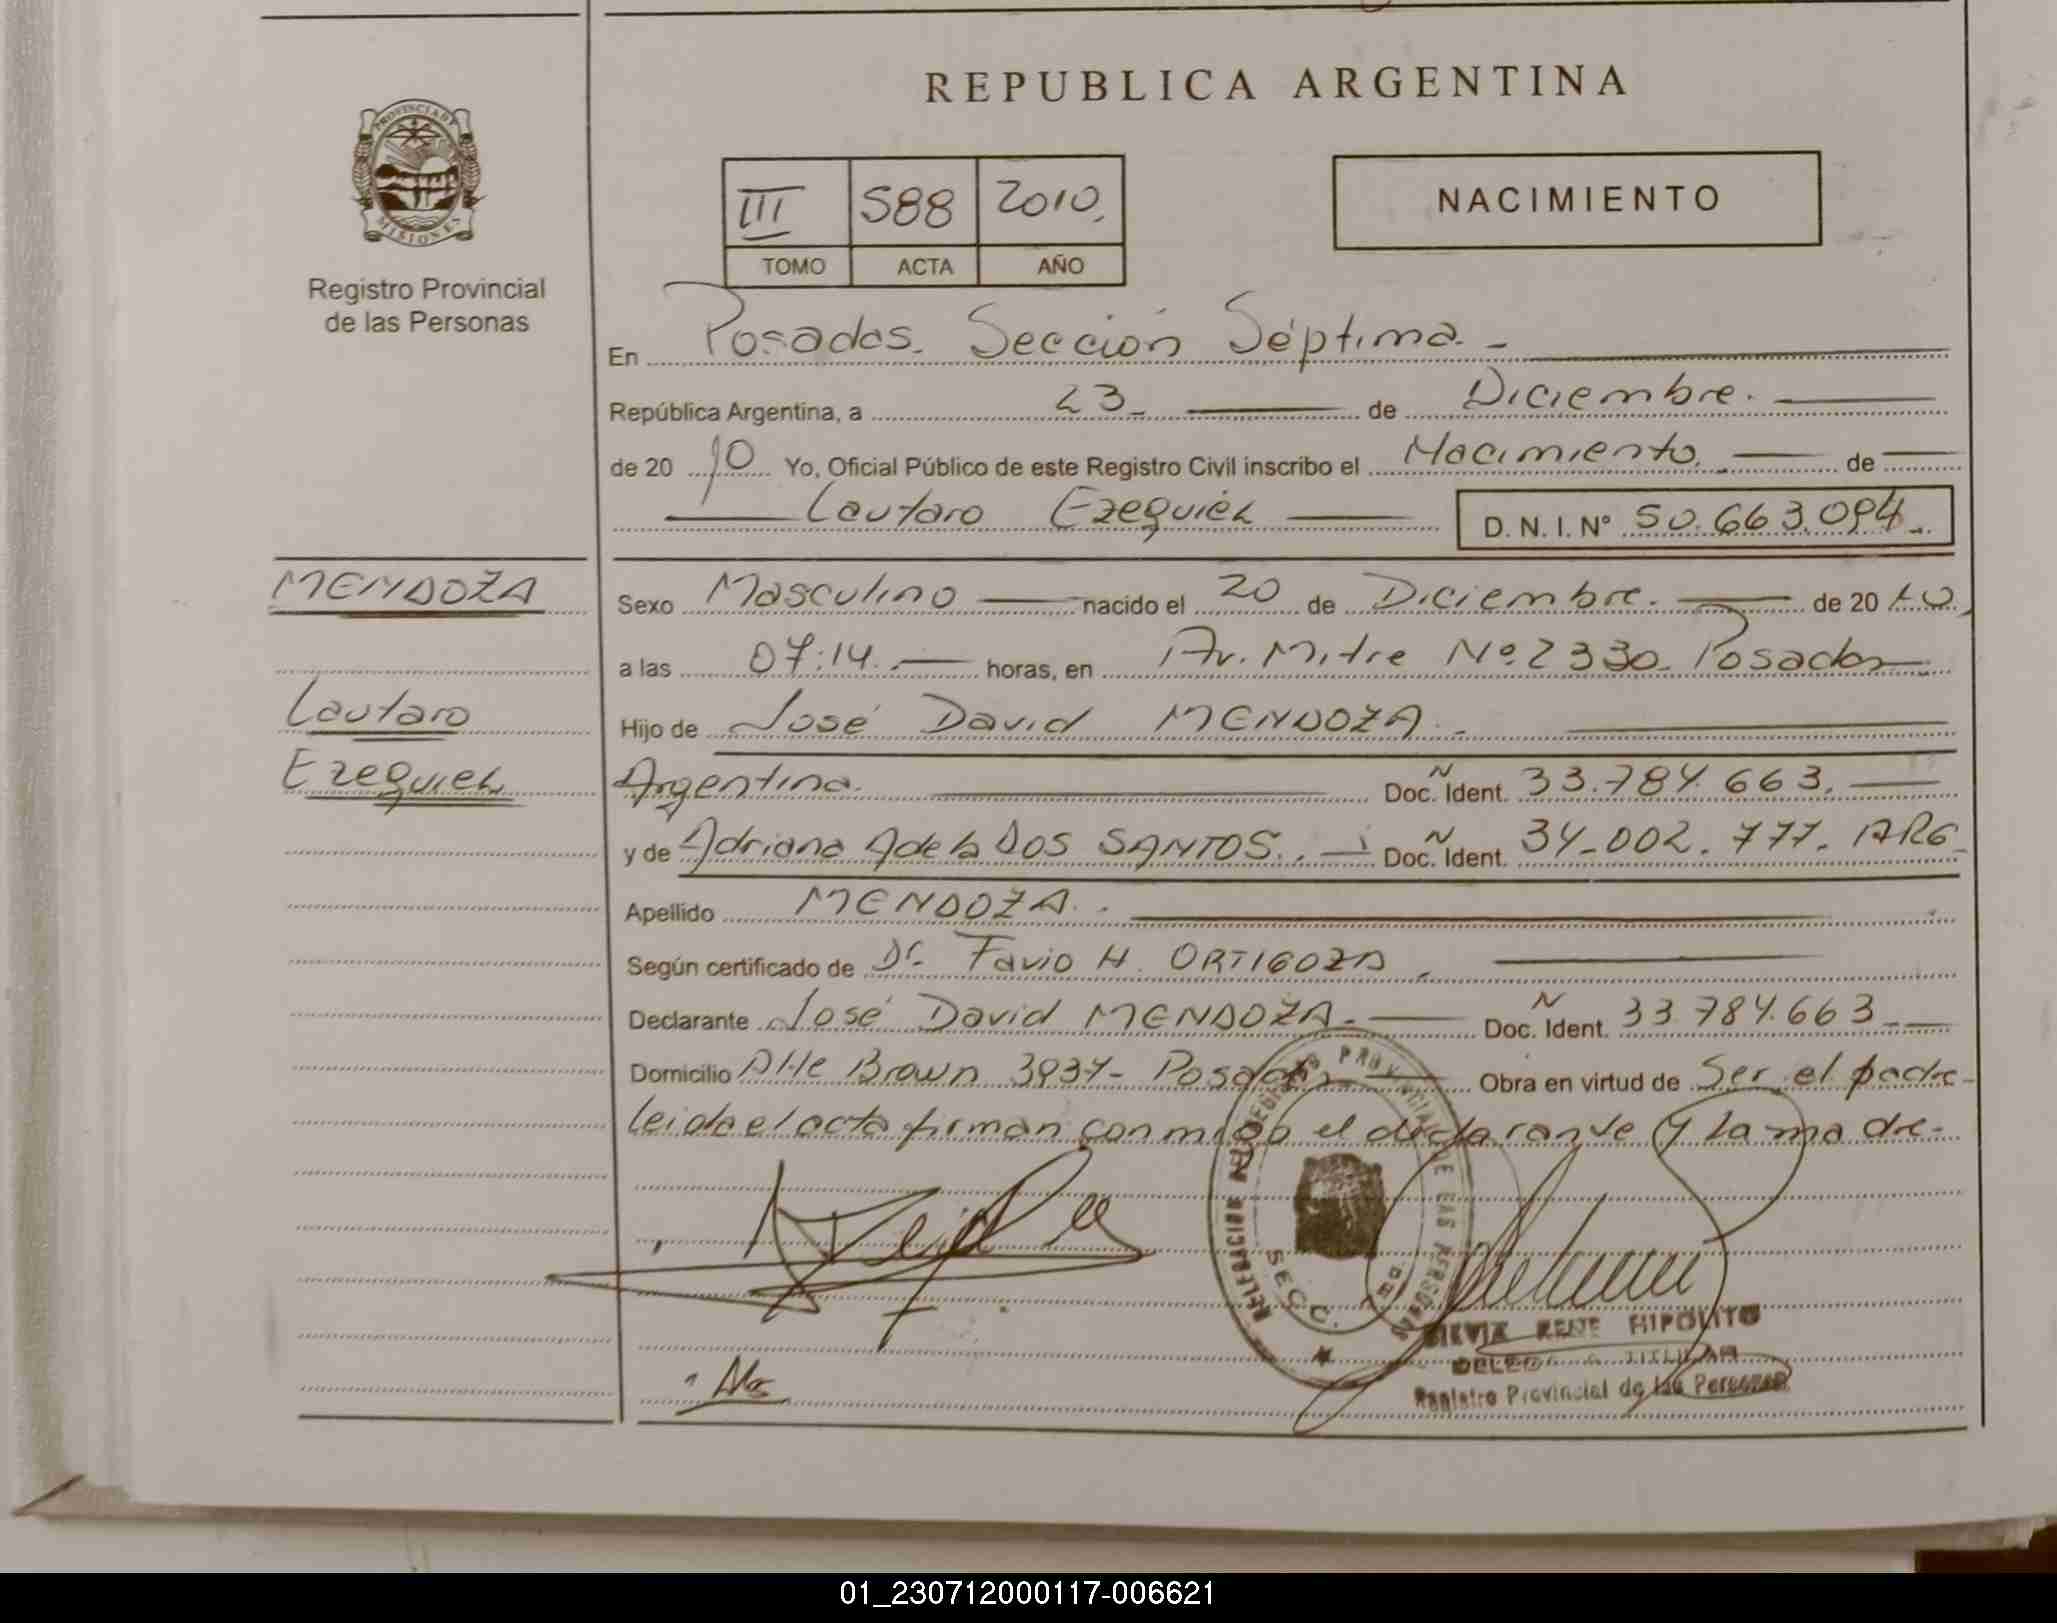 REPUBLICA ARGENTINA
PROVINCIA DE
MISIONES
Registro Provincial
de las Personas
III 588 2010
TOMO ACTA AÑO
NACIMIENTO
En Posadas. Sección Séptima.
República Argentina, a 23 de Diciembre.
de 20 10 Yo, Oficial Público de este Registro Civil inscribo el Nacimiento de
Lautaro Ezequiel D. N. I. Nº 50.663.094
MENDOZA
Lautaro
Ezequiel
Sexo Masculino nacido el 20 de Diciembre. de 20 10
a las 07:14. horas, en Av. Mitre Nº 2330. Posadas
Hijo de José David MENDOZA
Argentina. Doc. Ñ Ident. 33.784.663.
y de Adriana Adela DOS SANTOS. Doc. Ñ Ident. 34.002.777. ARG
Apellido MENDOZA.
Según certificado de Dr. Favio H. ORTIGOZA
Declarante José David MENDOZA Doc. Ñ Ident. 33.784.663
Domicilio Alte Brown 3937- Posadas Obra en virtud de Ser el padre-
leida el acta firman conmigo el declarante y La madre-
DELEGACION DEL REGISTRO PROVINCIAL DE LAS PERSONAS
SECC.
SILVIA RENE HIPOLITO
DELEGADA TITULAR
Registro Provincial de las Personas
01_230712000117-006621